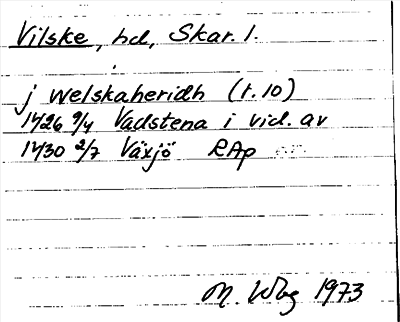 Vilske, hd, Skar. l.
j welskaheridh (r. 10)
1426 9/4 Vadstena i vid. av
1430 2/7 Växjö RAp
M. 1973